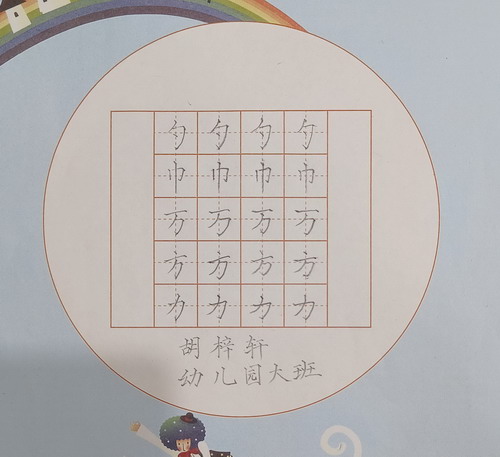 勺勺勺勺
巾巾巾巾
万万万万
方方方方
力力力力
胡梓轩
幼儿园大班